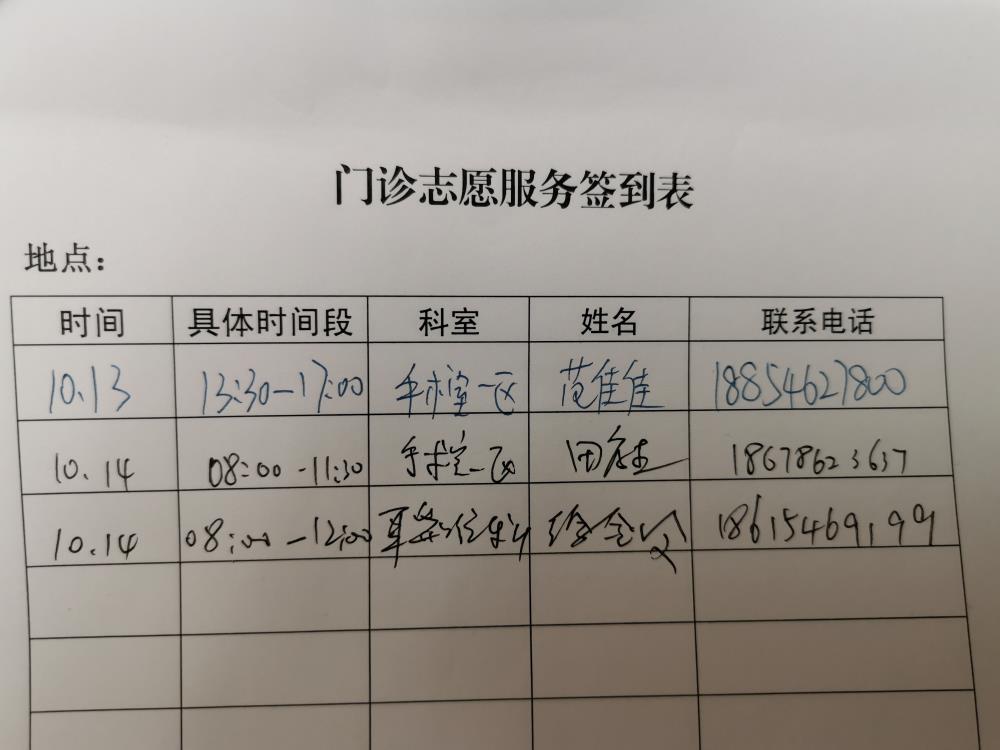 门诊志愿服务签到表
地点：
时间 具体时间段 科室 姓名 联系电话
10.13 13:30-17:00 手术室一区 范佳佳 18854627800
10.14 08:00-11:30 手术室一区 田 18678623637
10.14 08:00-12:00 徐金 18615469199